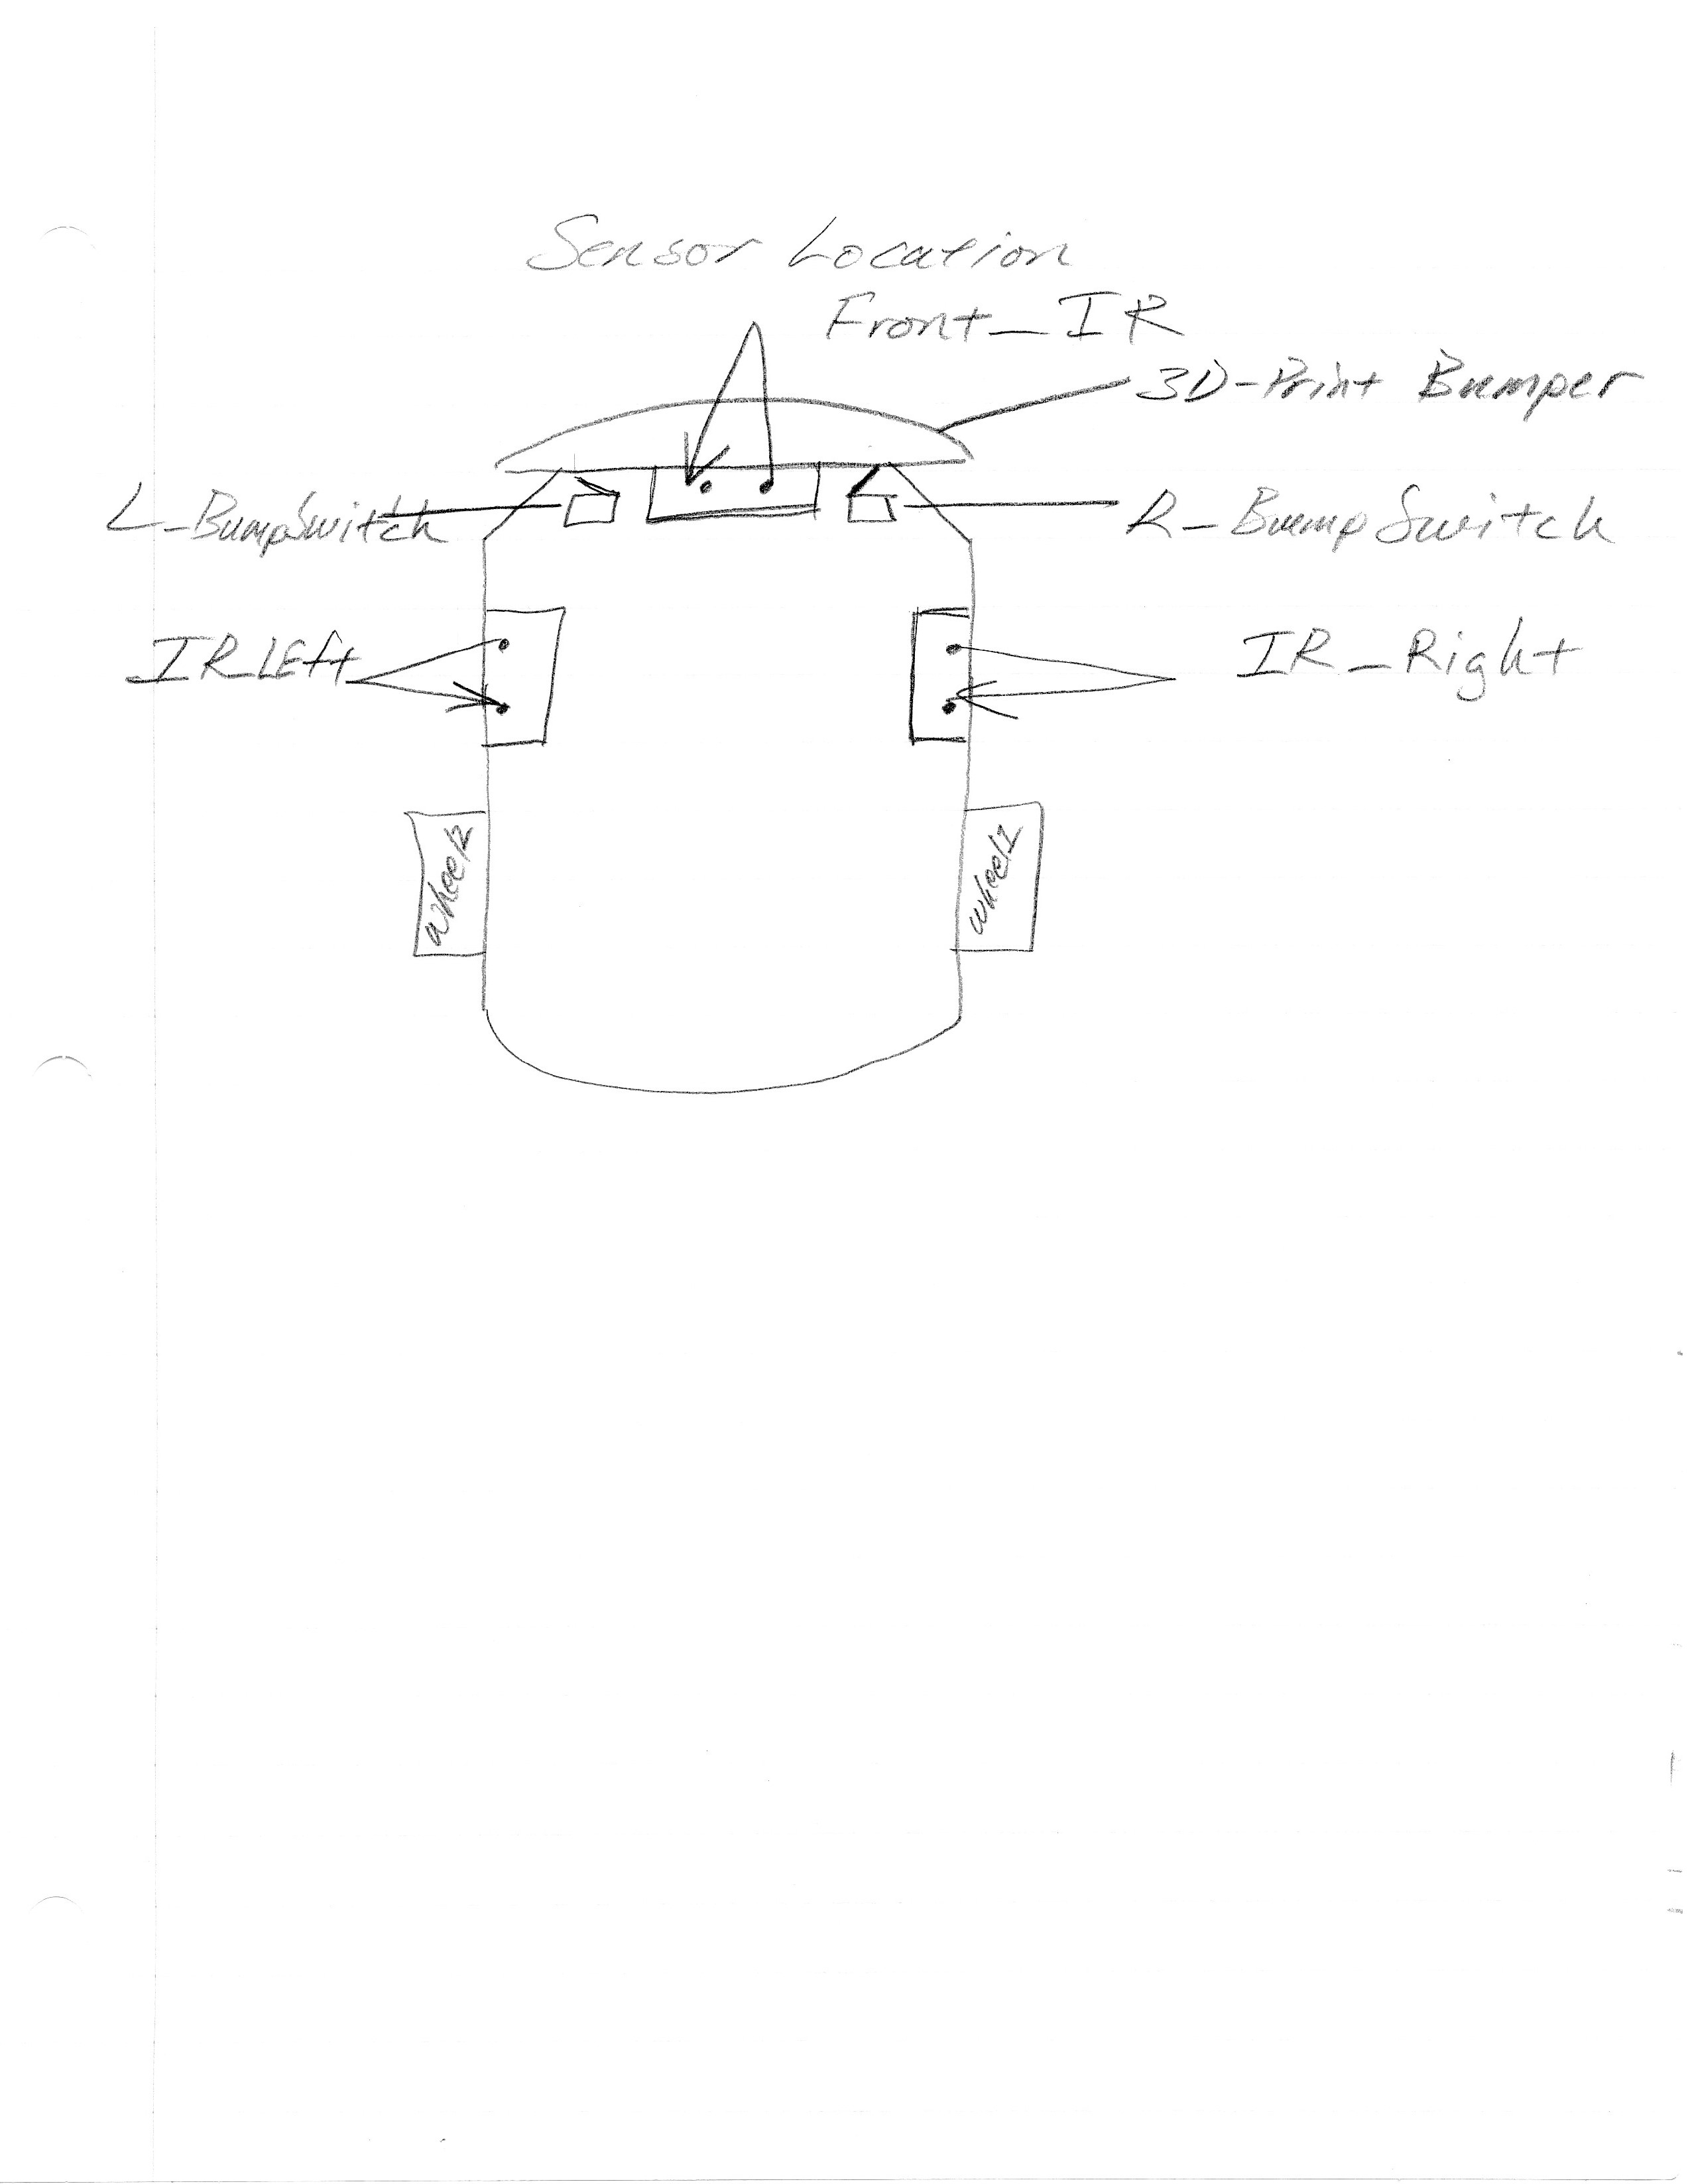 Sensor Location
Front_IR
3D-Print Bumper
L_BumpSwitch
R_BumpSwitch
IR_LEft
IR_Right
wheel2
wheel1